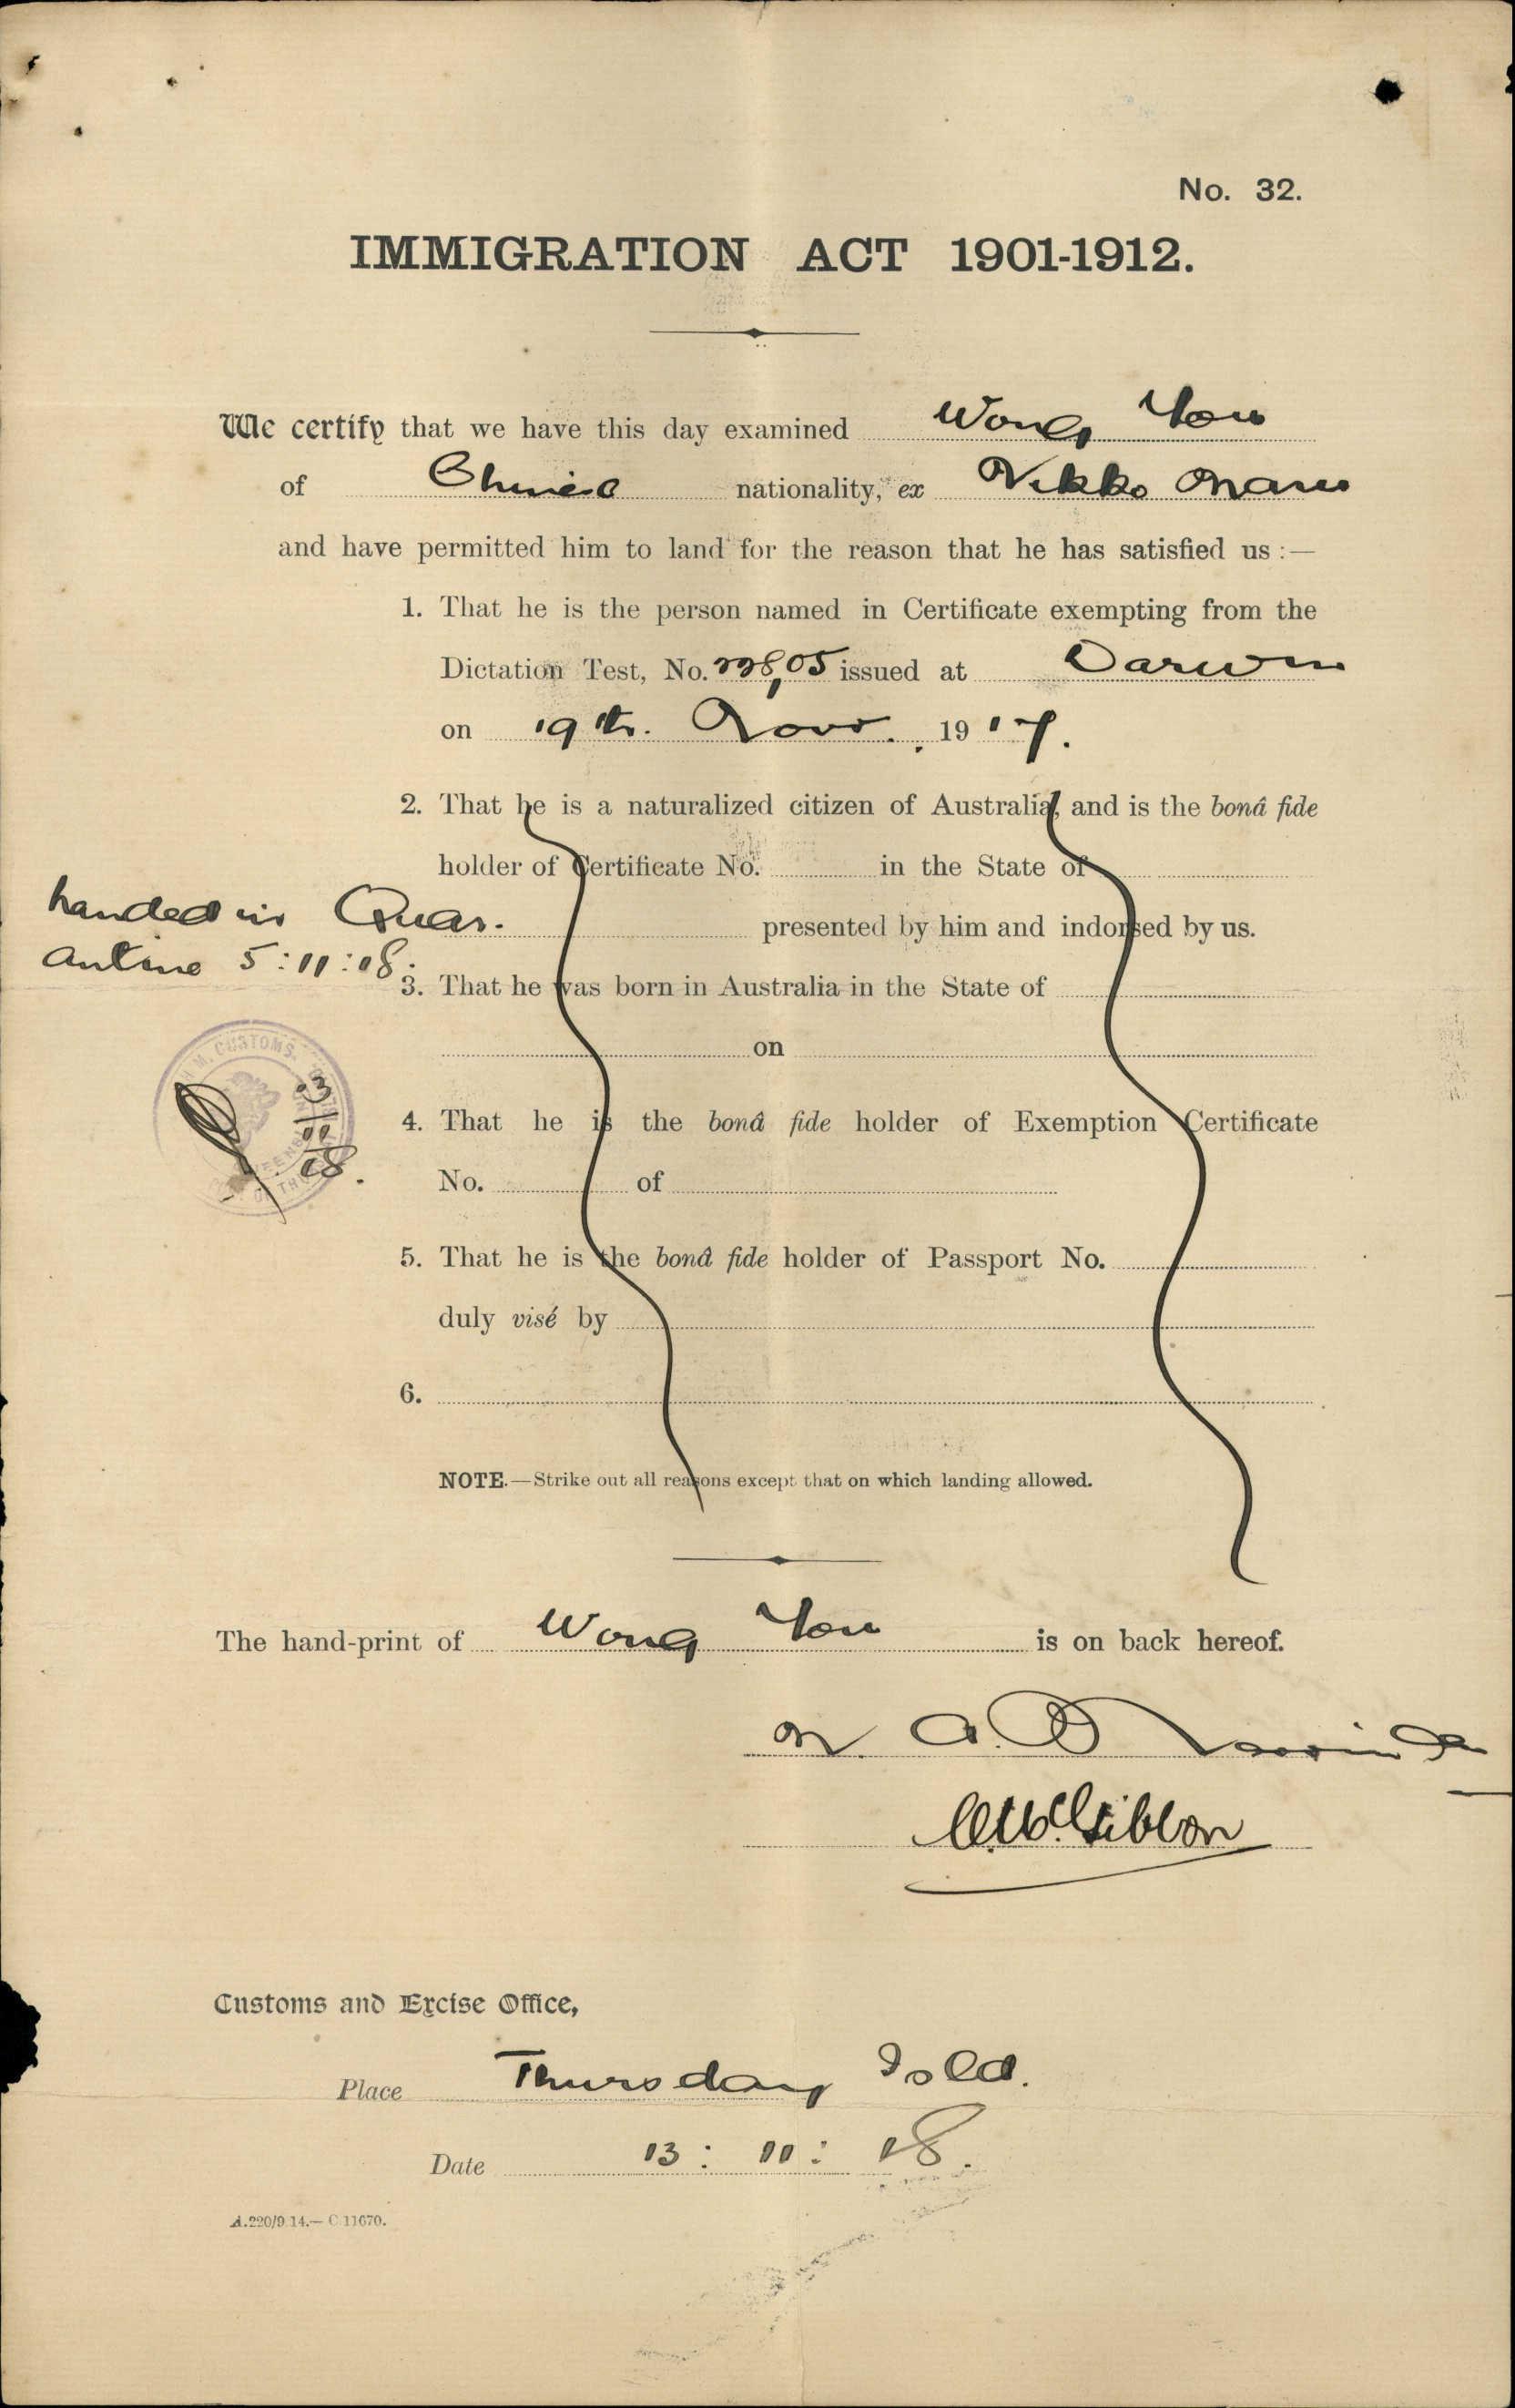 No. 32.
IMMIGRATION ACT 1901-1912.
We certify that we have this day examined Wong You
of Chinese nationality, ex Nikko Maru
and have permitted him to land for the reason that he has satisfied us :—
1. That he is the person named in Certificate exempting from the
Dictation Test, No. issued at Darwin
on 19th. Nov. , 19 17.
2. That he is a naturalized citizen of Australia, and is the bonâ fide
holder of Certificate No. in the State of
presented by him and indorsed by us.
handed in Quar-
antine 5:11:18.
3. That he was born in Australia in the State of
on
CUSTOMS
13
11
18.
4. That he is the bonâ fide holder of Exemption Certificate
No. of
5. That he is the bonâ fide holder of Passport No.
duly visé by
6.
NOTE.—Strike out all reasons except that on which landing allowed.
The hand-print of Wong You is on back hereof.
Customs and Excise Office,
Place Thursday Isld.
Date 13 : 11 : 18.
A.220/9.14.—C.11670.